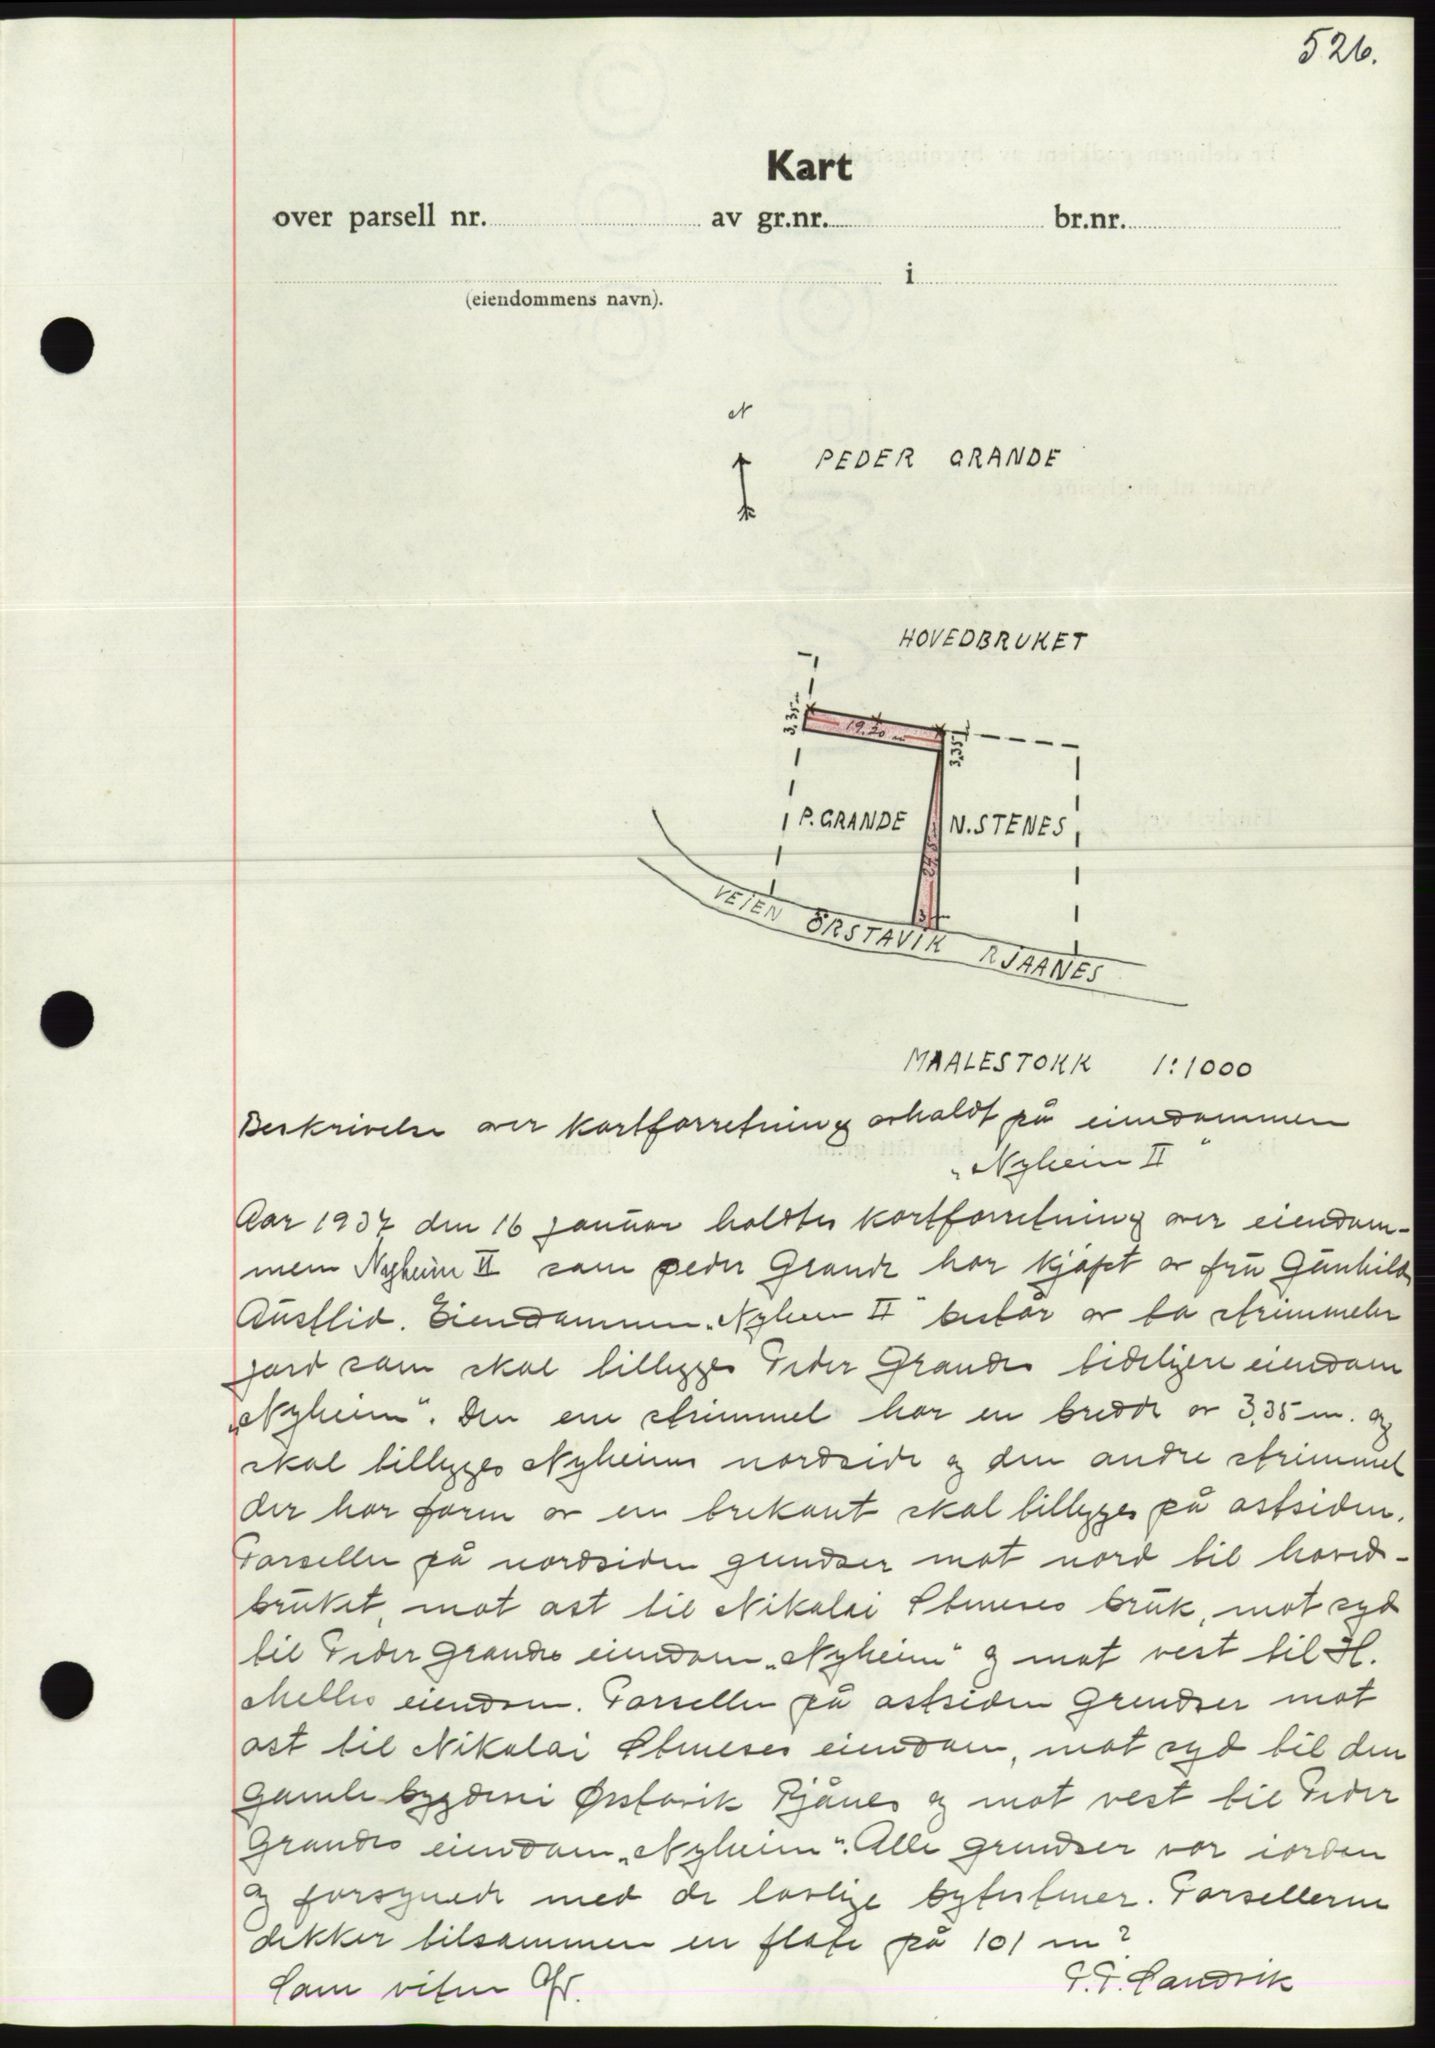 526.
Kart
over parsell nr. av gr.nr. br.nr.
i
(eiendommens navn).
N
PEDER GRANDE
HOVEDBRUKET
3,35
19.20 m
3,35
P. GRANDE
N. STENES
24.5
3
VEIEN ÖRSTAVIK RJAANES
MAALESTOKK 1:1000
Beskrivelse over kartforretning avholdt på eiendommen
„Nyheim II"
Aar 1937 den 16 januar holdtes kartforretning over eiendom-
men Nyheim II som peder Grande har kjøpt av fru Gunhild
Austlid. Eiendommen „Nyheim II" består av to strimmeler
jord som skal tillegges Peder Grandes tidligere eiendom
„Nyheim". Den ene strimmel har en bredde av 3,35 m. og
skal tillegges Nyheims nordside og den andre strimmel
der har form av en trekant skal tillegges på østsiden.
Parsellen på nordsiden grendser mot nord til hoved-
bruket, mot øst til Nikolai Steneses bruk, mot syd
til Peder Grandes eiendom „Nyheim" og mot vest til H.
Melles eiendom. Parsellen på østsiden grendser mot
øst til Nikolai Steneses eiendom, mot syd til den
gamle bygdevei Ørstavik Rjånes og mot vest til Peder
Grandes eiendom „Nyheim". Alle grendser var i orden
og forsynede med de lovlige bytestener. Parsellerne
dekker tilsammen en flate på 101 m²
Som viten
P. P. Sandvik